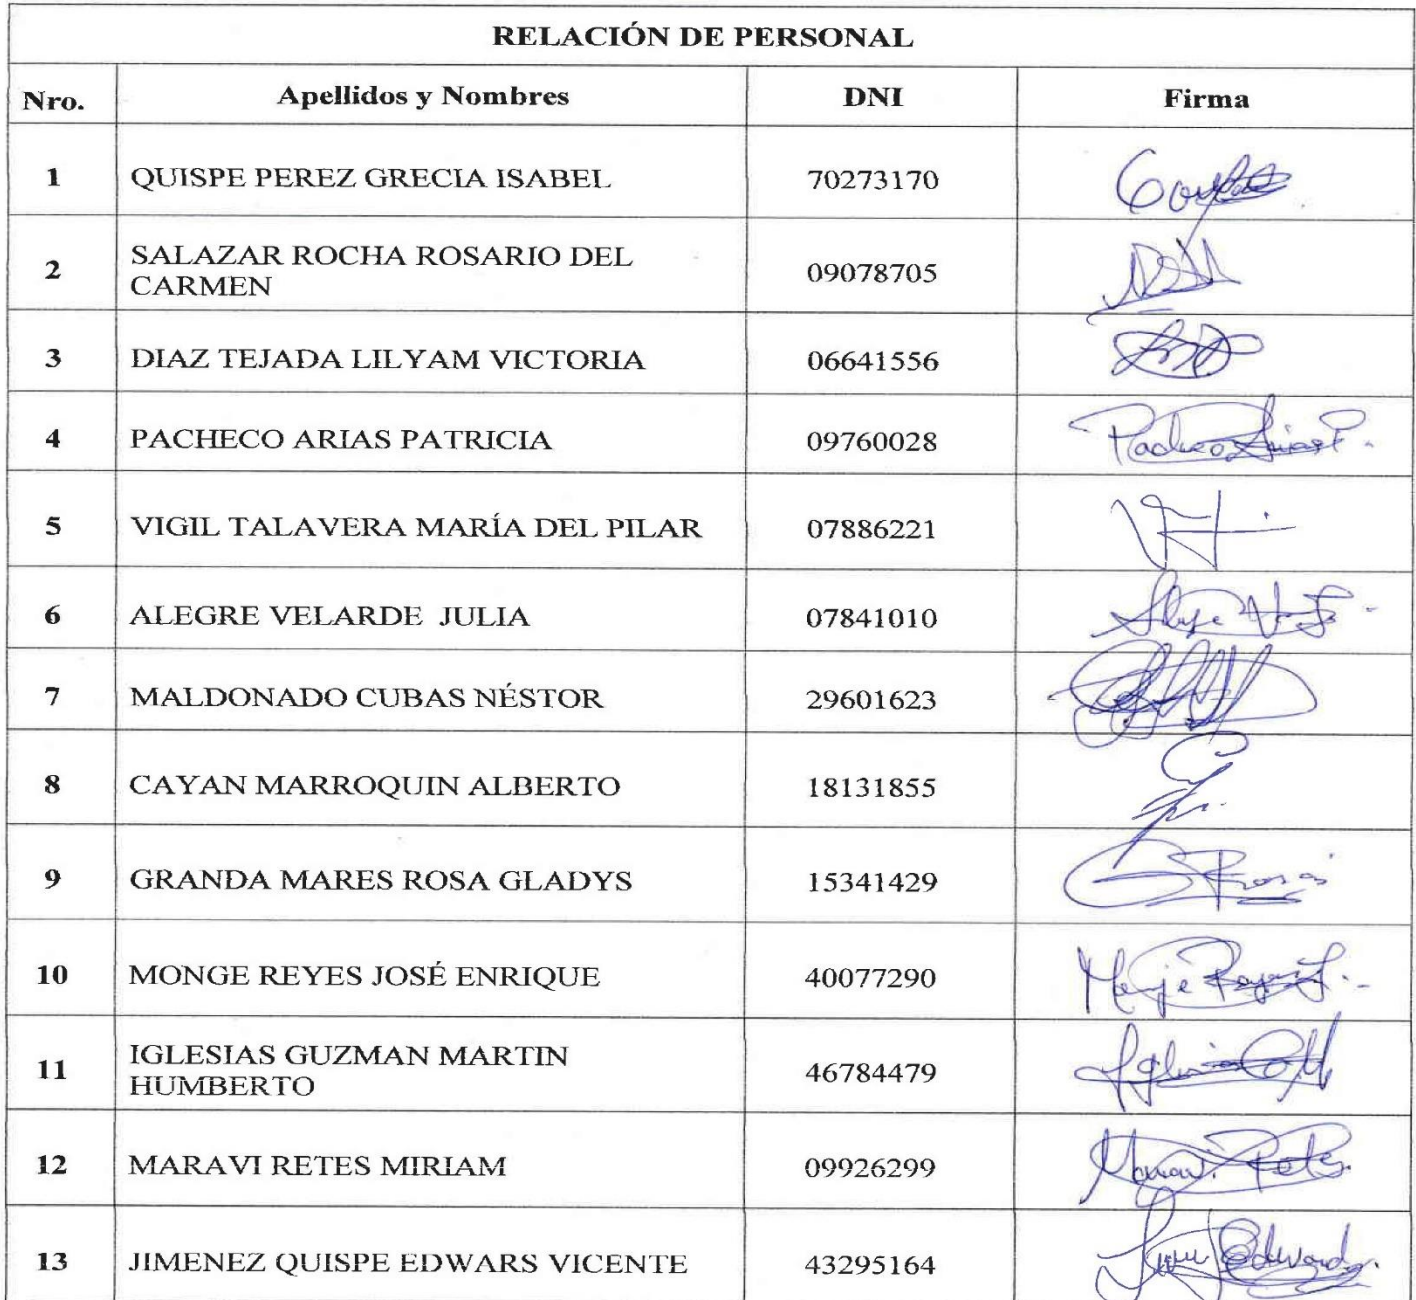 RELACIÓN DE PERSONAL
Nro. Apellidos y Nombres DNI Firma
1 QUISPE PEREZ GRECIA ISABEL 70273170
2 SALAZAR ROCHA ROSARIO DEL CARMEN 09078705
3 DIAZ TEJADA LILYAM VICTORIA 06641556
4 PACHECO ARIAS PATRICIA 09760028 Pacheco Arias P.
5 VIGIL TALAVERA MARÍA DEL PILAR 07886221
6 ALEGRE VELARDE JULIA 07841010
7 MALDONADO CUBAS NÉSTOR 29601623
8 CAYAN MARROQUIN ALBERTO 18131855
9 GRANDA MARES ROSA GLADYS 15341429 Rosa
10 MONGE REYES JOSÉ ENRIQUE 40077290
11 IGLESIAS GUZMAN MARTIN HUMBERTO 46784479
12 MARAVI RETES MIRIAM 09926299
13 JIMENEZ QUISPE EDWARS VICENTE 43295164